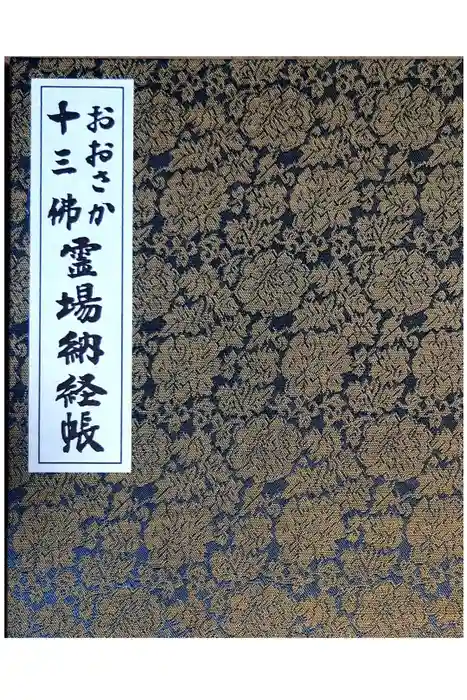 おおさか
十三佛霊場納経帳